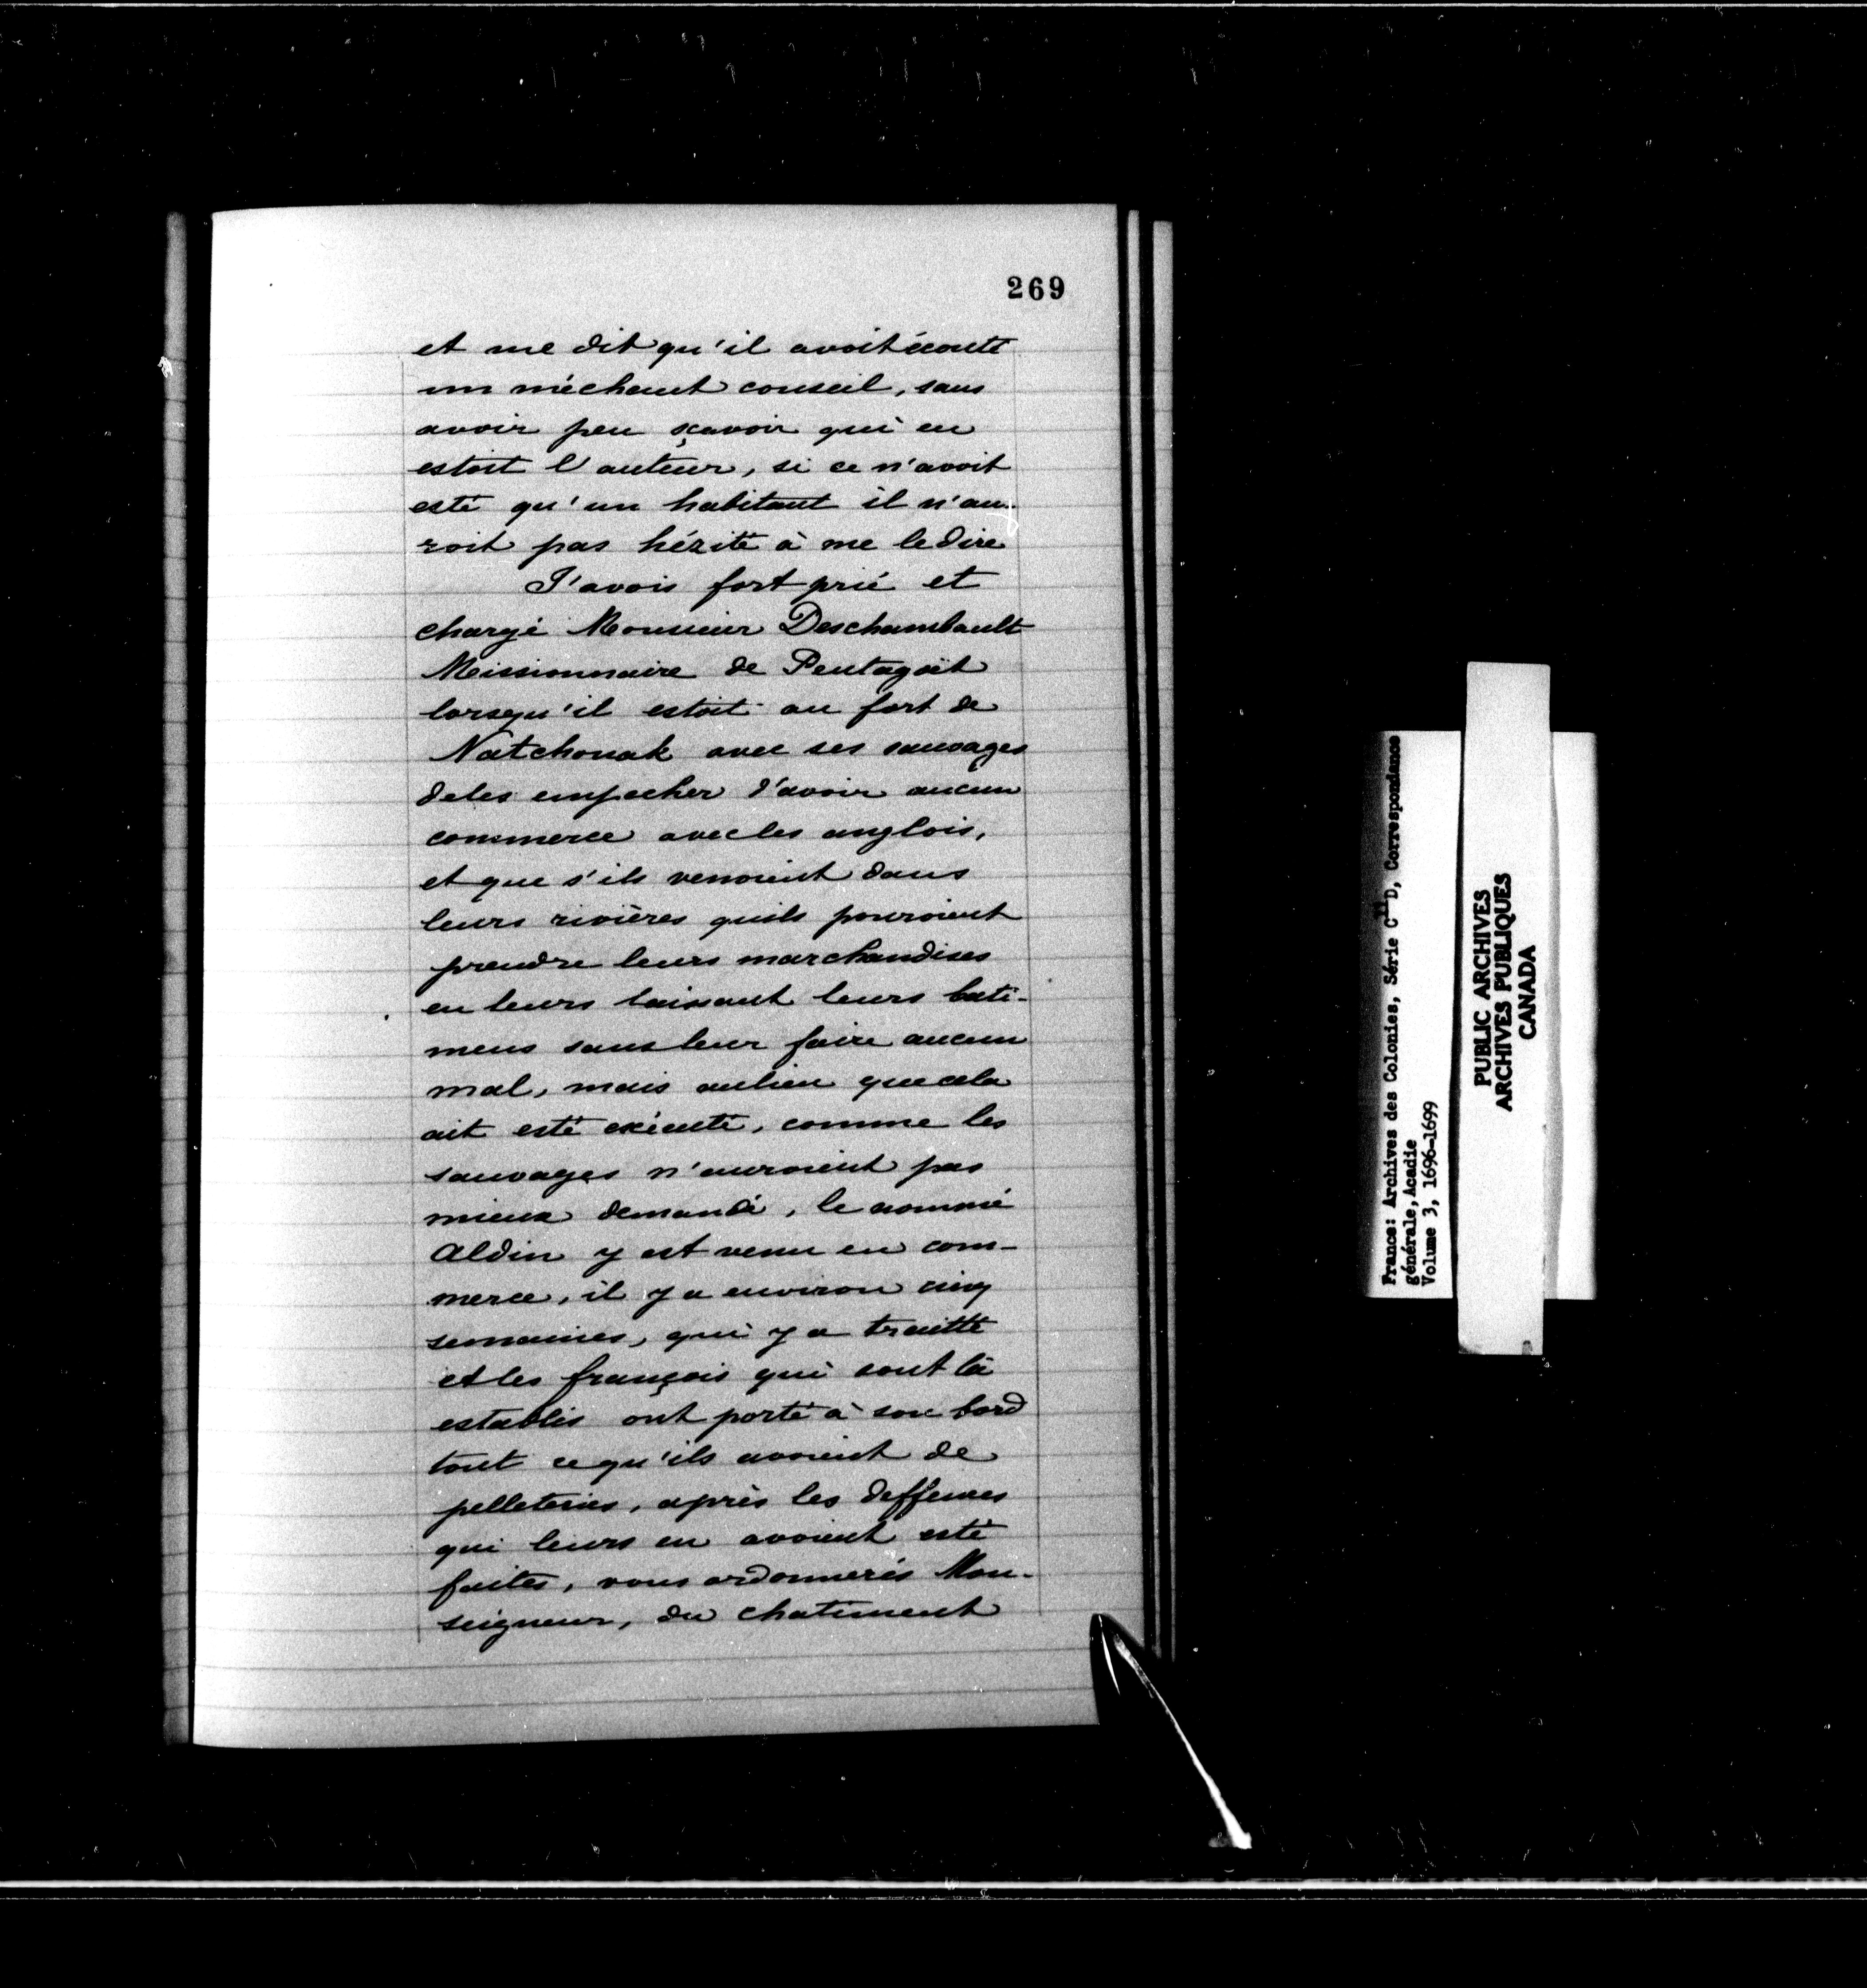 269
et me dit qu'il avoit écouté
un méchant conseil, sans
avoir peu sçavoir qui en
estoit l'auteur, si ce n'avoit
esté qu'un habitant il n'au-
roit pas hézité à me le dire
J'avois fort prié et
chargé Monsieur Deschambault
Missionnaire de Pentagoët
lorsqu'il estoit au fort de
Natchouak avec ses sauvages
de les empecher d'avoir aucun
commerce avec les anglois,
et que s'ils venoient dans
leurs rivières quils pouroient
prendre leurs marchandises
en leurs laissant leurs bati-
mens sans leur faire aucun
mal, mais aulieu que cela
ait esté exécuté, comme les
sauvages n'auroient pas
mieux demandé, le nommé
Aldin y est venu en com-
merce, il y a environ cinq
semaines, qui y a traitté
et les françois qui sont là
establis ont porté à son bord
tout ce qu'ils avoient de
pelleteries, après les deffenses
qui leurs en avoient esté
faites, vous ordonnerés Mon-
seigneur, du chatiment
France: Archives des Colonies, Série C11D, Correspondance
générale, Acadie
Volume 3, 1696-1699
PUBLIC ARCHIVES
ARCHIVES PUBLIQUES
CANADA